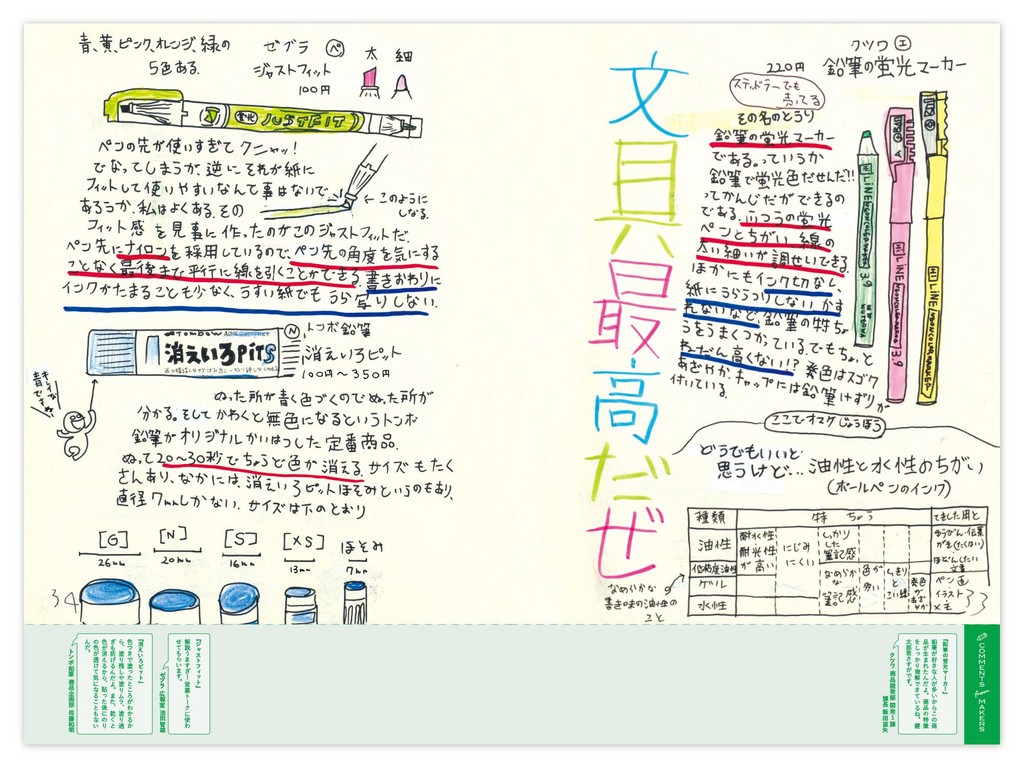 文具最高だぜ
クツワ エ
220円 鉛筆の蛍光マーカー
ステッドラーでも
売ってる
その名のとうり
鉛筆の蛍光マーカー
である。っていうか
鉛筆で蛍光色だせんだ!!
ってかんじだができるの
である。ふつうの蛍光
ペンとちがい、線の
太い細いが調せいできる。
ほかにもインク切なし、
紙にうらうつりしない、かす
れないなど、鉛筆の特ちょ
うをうまくつかっている。でもちょっと
ねだん高くない!? 発色はスゴク
あざやか。キャップには鉛筆けずりが
付いている。
ここでオマケじょうほう
どうでもいいと
思うけど… 油性と水性のちがい
(ボールペンのインク)
種類 特ちょう てきした用と
油性 耐水性 耐光性が高い にじみにくい しっかりした筆記感
低粘度油性
ゲル なめらかな筆記感 色が多い
水性
ペン画
イラスト
メモ
なめらかな
書き味の油性の
こと
33
青、黄、ピンク、オレンジ、緑の
5色ある。
ゼブラ ペ
ジャストフィット
100円
太 細
蛍光 JUSTFIT
ペンの先が使いすぎてクニャッ!
でなってしまうが、逆にそれが紙に
フィットして使いやすいなんて事はないで
あろうか。私はよくある。その
フィット感を見事に作ったのがこのジャストフィットだ。
←このように
しなる。
ペン先にナイロンを採用しているので、ペン先の角度を気にする
ことなく最後まで平行に線を引くことができる。書きおわりに
インクがたまることも少なく、うすい紙でもうら写りしない。
Tombow
消えいろPiTS
N トンボ鉛筆
消えいろピット
100円〜350円
キレイな
青ですね!
ぬった所が青く色づくのでぬった所が
分かる。そしてかわくと無色になるというトンボ
鉛筆がオリジナルかいはつした定番商品。
ぬって20〜30秒でちょうど色が消える。サイズもたく
さんあり、なかには、消えいろピットほそみというのもあり、
直径7mmしかない。サイズは下のとおり
[G] [N] [S] [XS] ほそみ
26mm 20mm 16mm 13mm 7mm
34
COMMENTS from MAKERS
『鉛筆の蛍光マーカー』
鉛筆が好きな人が多いからこの商
品が生まれたんだよ。商品の特徴
をしっかり理解できているね。健
太郎君さすがです。
クツワ 商品開発部 開発1課
課長 飯田直矢
『ジャストフィット』
解説うますぎ!営業トークに使わ
せてもらいます。
ゼブラ 広報室 池田智雄
『消えいろピット』
色つきで塗ったところがわかるか
ら、塗り残しや塗りムラ、塗り過
ぎも防げるんだよ。また、乾くと
色が消えるから、貼った後にのり
の色が透けて気になることもない
んだ。
トンボ鉛筆 商品企画部 佐藤和明